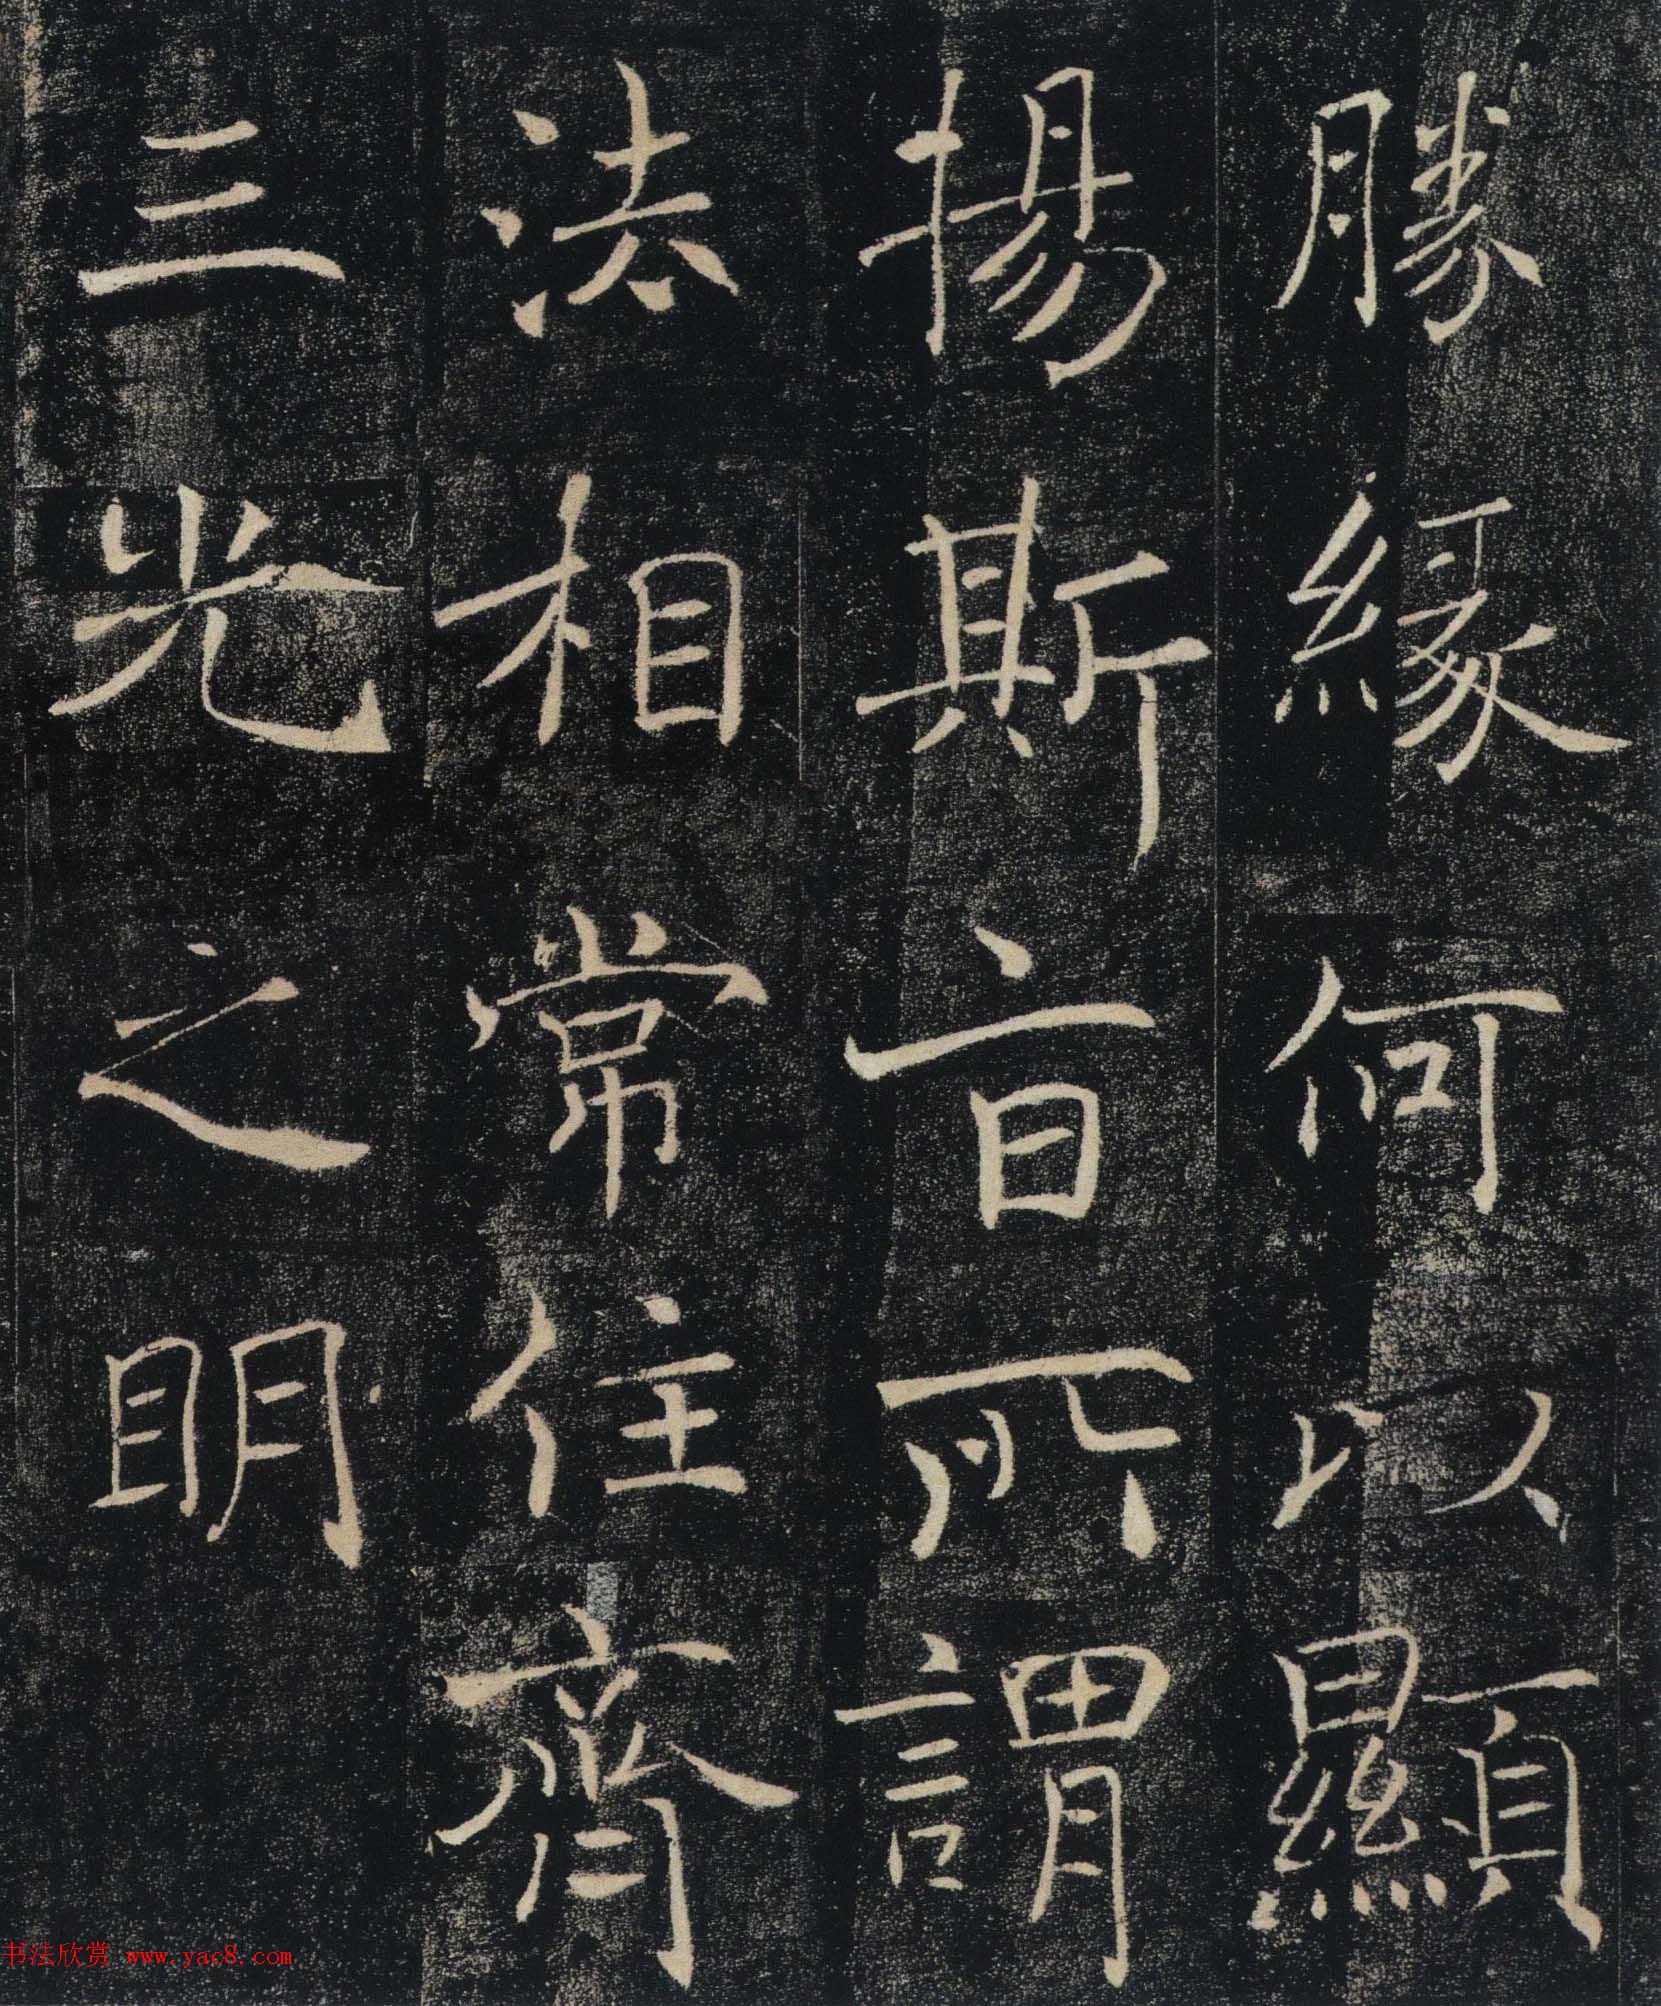 勝緣何以顯
揚斯旨所謂
法相常住齊
三光之明
书法欣赏 www.yac8.com